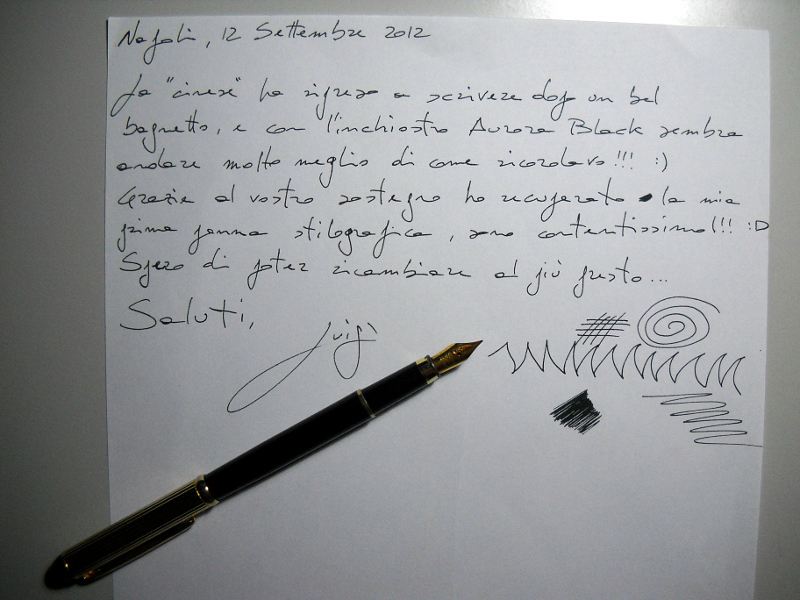 Napoli, 12 Settembre 2012
La "cinese" ha ripreso a scrivere dopo un bel
bagnetto, e con l'inchiostro Aurora Black sembra
andare molto meglio di come ricordavo!!! :)
Grazie al vostro sostegno ho recuperato la mia
prima penna stilografica, sono contentissimo!!! :D
Spero di poter ricambiare al più presto...
Saluti,
Luigi